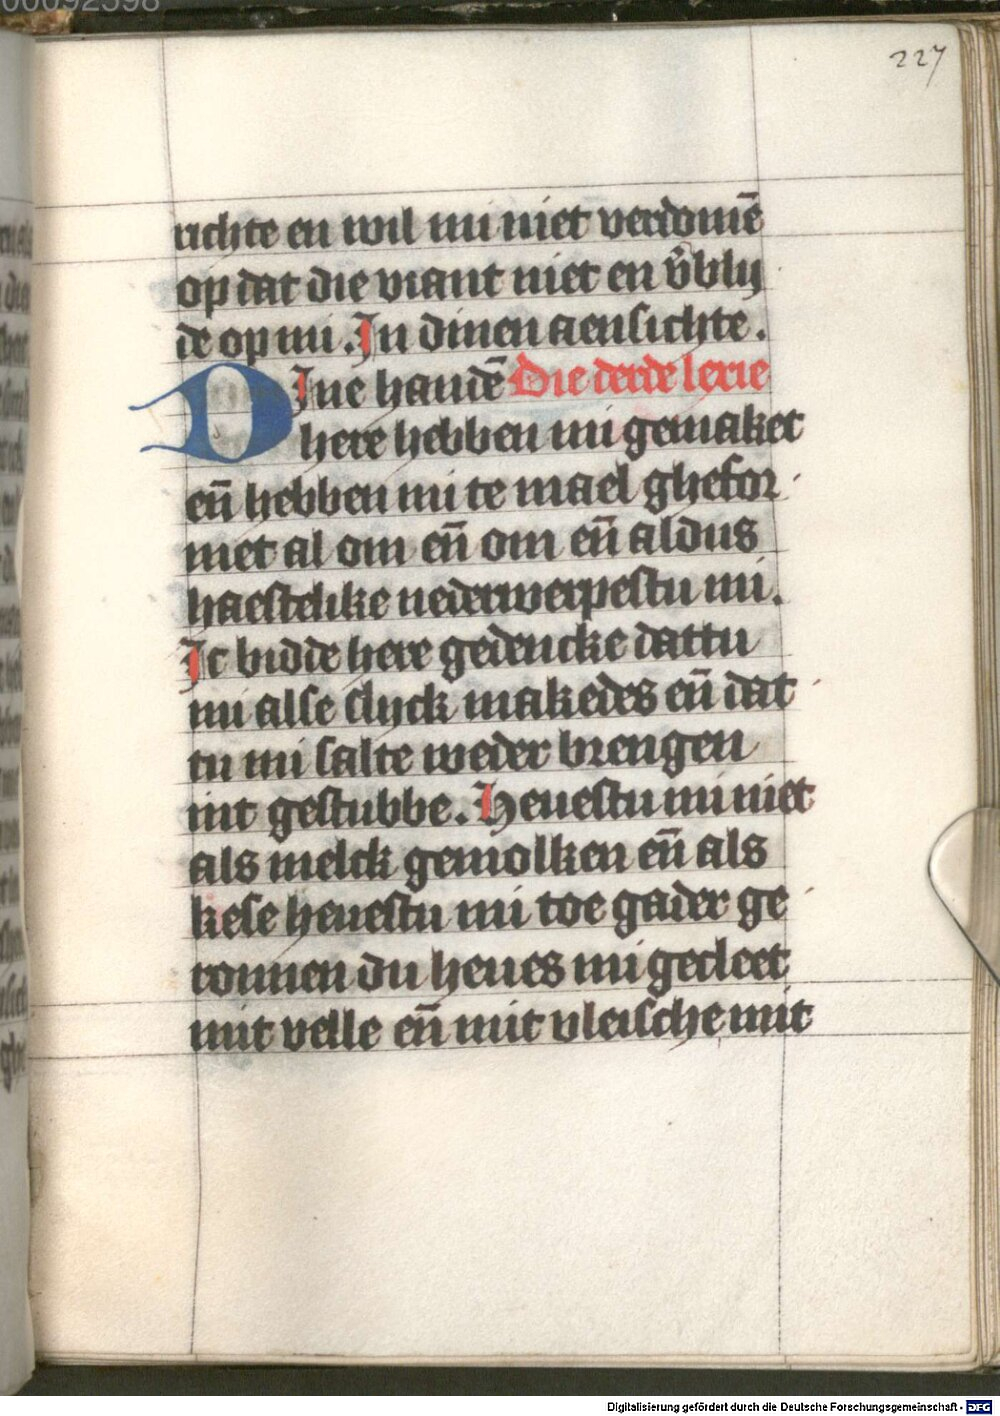 00092598
227
richte en wil mi niet verdomē
op dat die viant niet en v̄bly
de op mi. In dinen aensichte.
DIne handē Die derde lexie
here hebben mi gemaket
en̄ hebben mi te mael ghefor
met al om en̄ om en̄ aldus
haestelike nederwerpestu mi.
Ic bidde here gedencke dattu
mi alse slyck makedes en̄ dat
tu mi salte weder brengen
int gestubbe. Heuestu mi niet
als melck gemolken en̄ als
kese heuestu mi toe gader ge
ronnen du heues mi gecleet
mit velle en̄ mit vleische mit
Digitalisierung gefördert durch die Deutsche Forschungsgemeinschaft - DFG